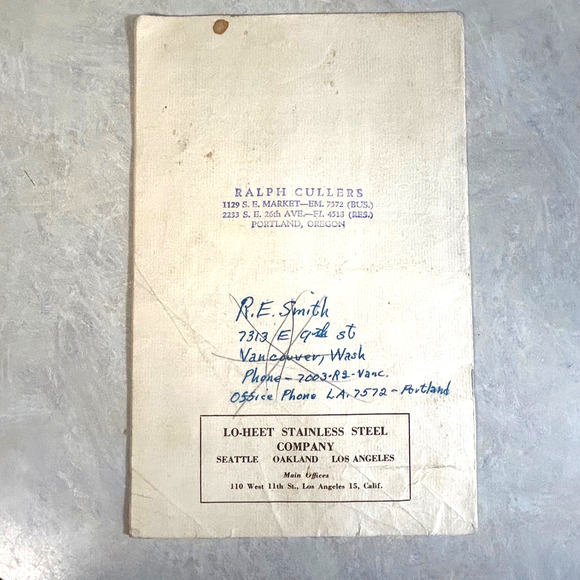 RALPH CULLERS
1129 S. E. MARKET—EM. 7572 (BUS.)
2233 S. E. 26th AVE.—FI. 4513 (RES.)
PORTLAND, OREGON
R.E. Smith
7313 E 9th st
Vancouver, Wash
Phone - 7003-R2-Vanc.
Office Phone LA. 7572 - Portland
LO-HEET STAINLESS STEEL
COMPANY
SEATTLE OAKLAND LOS ANGELES
Main Offices
110 West 11th St., Los Angeles 15, Calif.